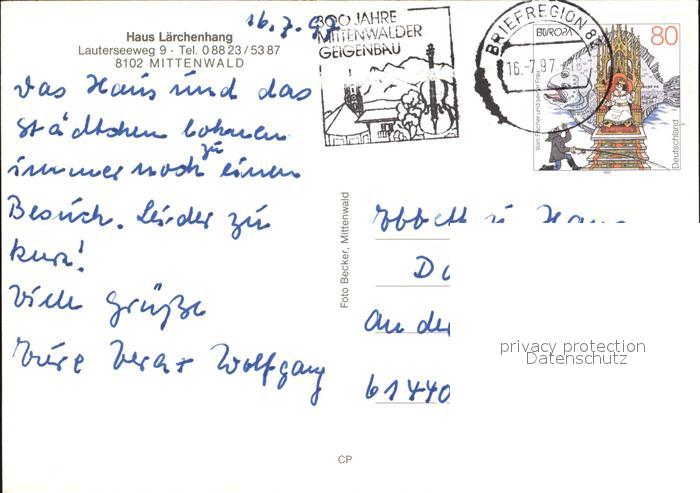 16.7.97
Haus Lärchenhang
Lauterseeweg 9 · Tel. 0 88 23 / 53 87
8102 MITTENWALD
300 JAHRE
MITTENWALDER
GEIGENBAU
BRIEFREGION 8
16.-7.97
EUROPA
80
Vom Fischer und seiner Frau
Deutschland
1997
Das Haus und das
Städtchen lohnen
immer noch zu einen
Besuch. Leider zu
kurz!
Viele Grüße
Eure Vera + Wolfgang
Foto Becker, Mittenwald
u Hans
An der
61440
privacy protection
Datenschutz
CP